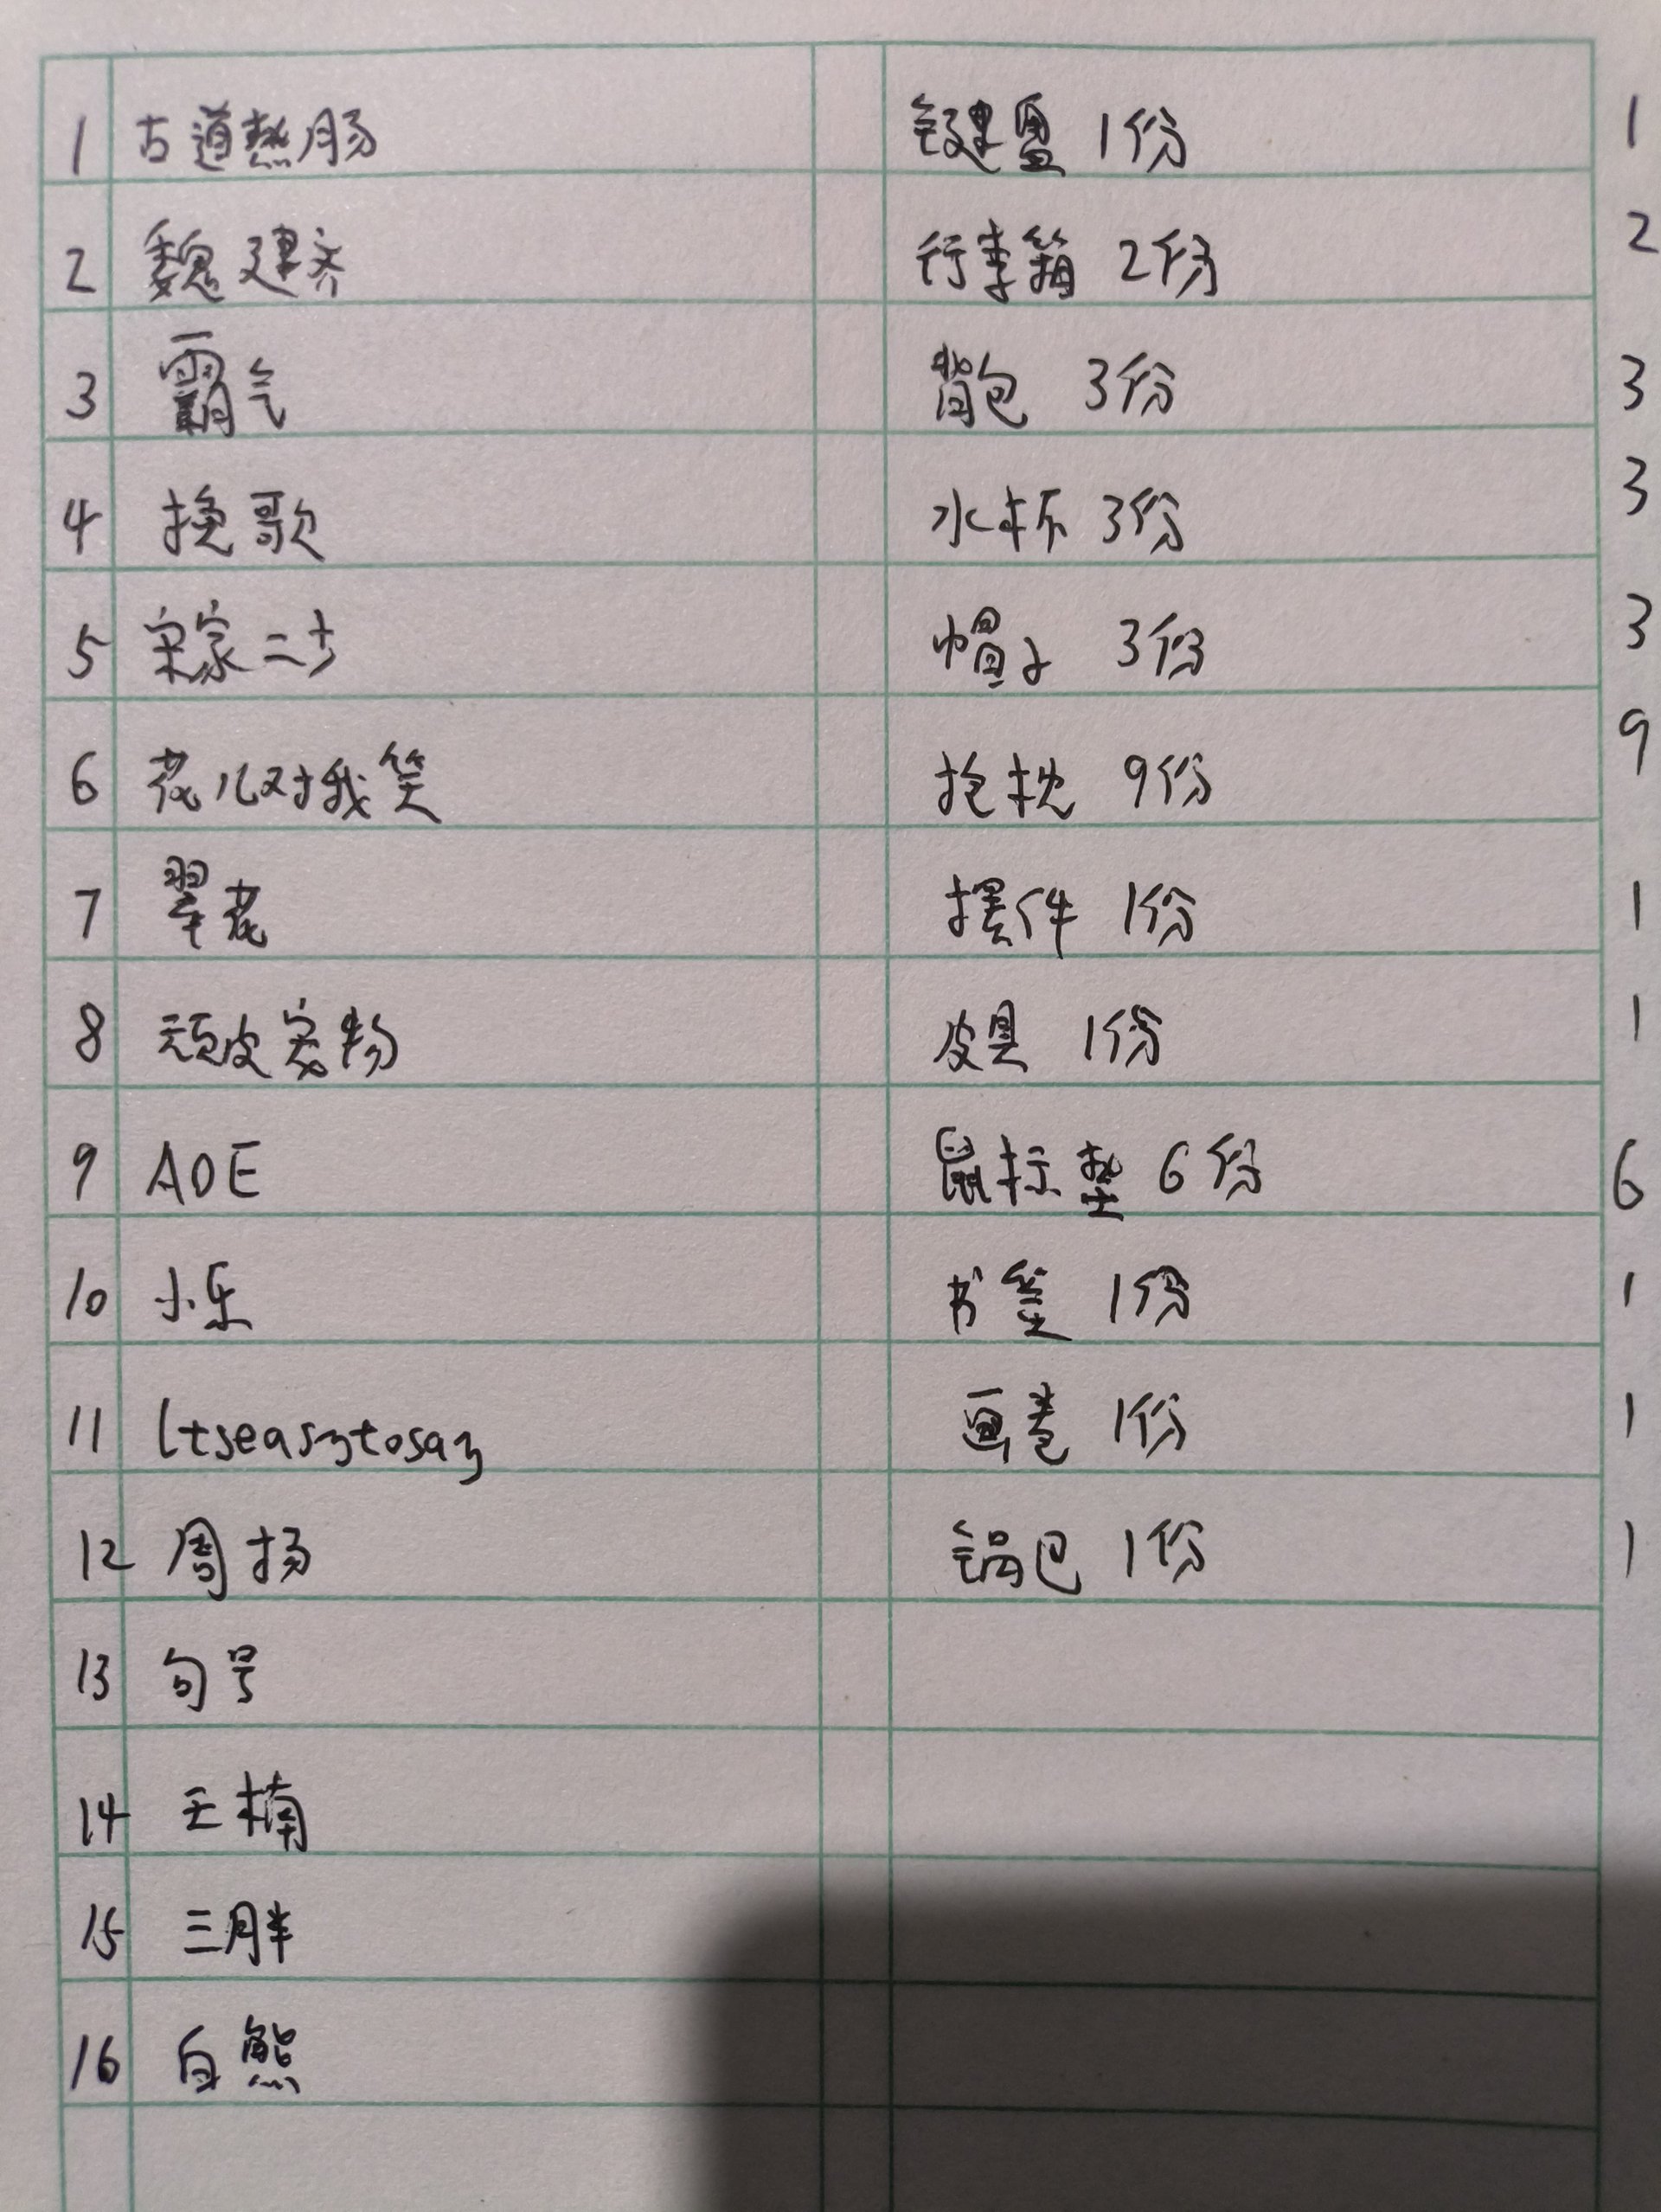 1 古道热肠 键盘 1份 1
2 魏建齐 行李箱 2份 2
3 霸气 背包 3份 3
4 挽歌 水杯 3份 3
5 宋家二少 帽子 3份 3
6 花儿对我笑 抱枕 9份 9
7 翠花 摆件 1份 1
8 顽皮宠物 皮具 1份 1
9 AOE 鼠标垫 6份 6
10 小乐 书签 1份 1
11 Itseasytosay 画卷 1份 1
12 周扬 锅巴 1份 1
13 句号
14 王楠
15 三胖
16 白熊